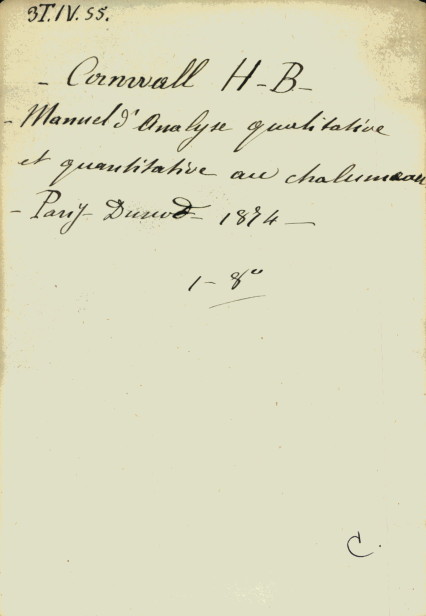 3T.IV.55.
- Cornwall H-B-
- Manuel d'Analyse qualitative
et quantitative au chalumeau
- Paris- Dunod- 1874 -
1 - 8º
C.